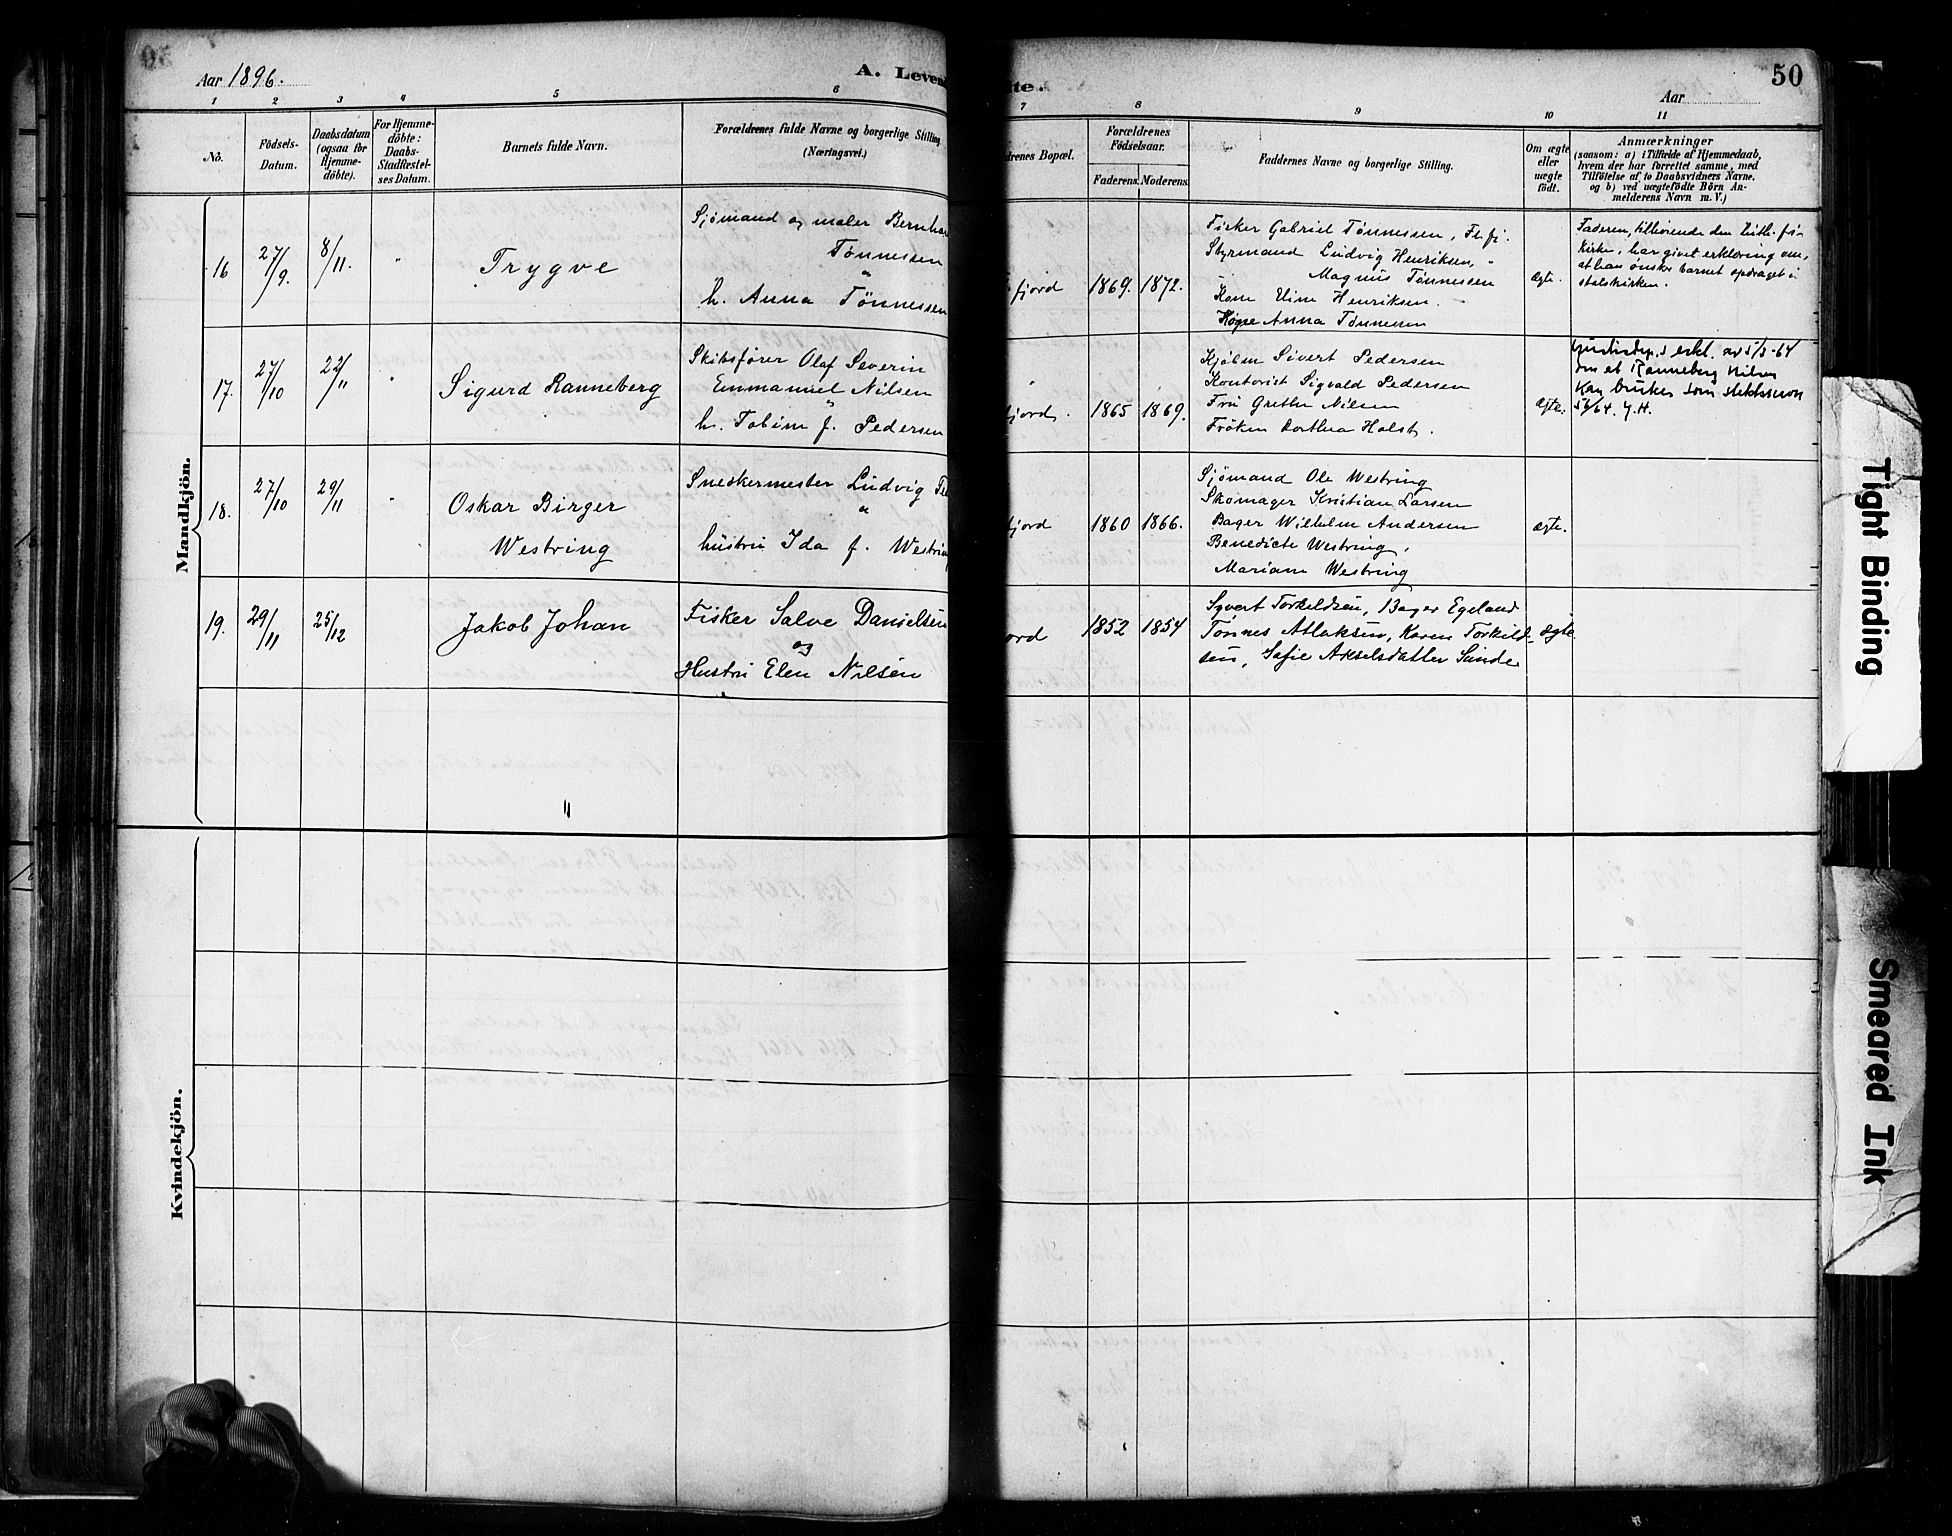 Aar 1896.
A. Levend
te.
50
Aar
1 2 3 4 5 6 7 8 9 10 11
No.
Födsels-
Datum.
Daabsdatum
(ogsaa for
Hjemme-
döbte).
For Hjemme-
döbte:
Daabs-
Stadfæstel-
ses Datum.
Barnets fulde Navn.
Forældrenes fulde Navne og borgerlige Stilling.
(Næringsvei.)
drenes Bopæl.
Forældrenes
Födselsaar.
Faderens. Moderens.
Faddernes Navne og borgerlige Stilling.
Om ægte
eller
uægte
født.
Anmærkninger
(saasom: a) i Tilfælde af Hjemmedaab,
hvem der har forrettet samme, med
Tilföielse af to Daabsvidners Navne,
og b) ved uægtefödte Börn An-
melderens Navn m. V.)
Mandkjön.
16 27/9. 8/11. "
Trygve
Sjømand og maler Bernhar
Tønnessen
"
h. Anna Tønnessen
fjord
1869. 1872.
Fisker Gabriel Tønnessen, Fl.fj.
Styrmand Ludvig Henriksen, "
Magnus Tønnessen
Kone Henriksen.
Anna Tønnessen
ægte.
Faderen, tilhørende den
kirke, har givet erklæring om,
at han ønsker barnet opdraget i
statskirken.
17. 27/10 22/11 "
Sigurd Ranneberg
Skibsfører Olaf Severin
Emmanuel Nilsen
"
h. Tobine f. Pedersen
fjord.
1865 1869.
Sivert Pedersen
Kontorist Sigvald Pedersen
Fru Grethe Nilsen
Frøken Dorthea Holst.
ægte.
Justisdep.s erkl. av 5/3-64
om at Ranneberg Nilsen
kan brukes som slektsnavn
5/6 64. J.H.
18. 27/10 29/11 "
Oskar Birger
Westring
Snedkermester Ludvig
"
hustru Ida f. Westring
fjord
1860 1866.
Sjømand Ole Westring
Skomager Kristian Larsen
Bager Wilhelm Andersen
Benedicte Westring,
Mariane Westring
ægte.
19. 29/11 25/12
Jakob Johan
Fisker Salve Danielsen
og
Hustru Elen Nilsen
ord
1852 1854
Syvert Torkildsen, Bager Egeland
Tønnes Atlaksen, Karen Torkild-
sen, Sofie Akselsdatter Sunde
ægte
"
Kvindekjön.
Tight Binding
Smeared Ink